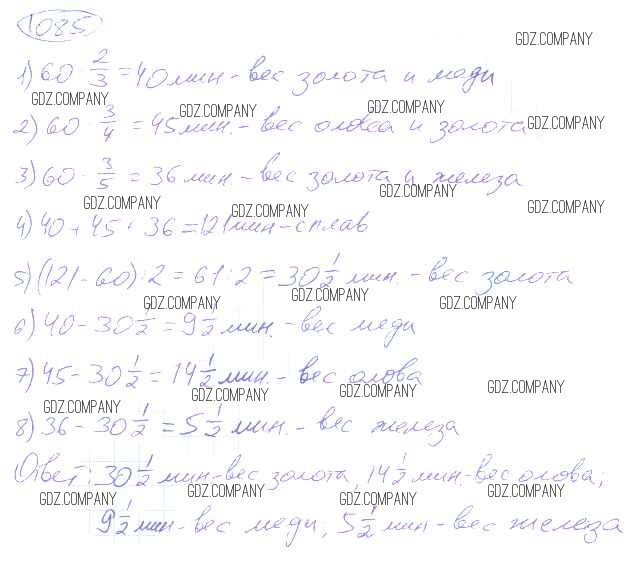 1085
GDZ.COMPANY
1) 60 · 2/3 = 40 мин - вес золота и меди
GDZ.COMPANY GDZ.COMPANY GDZ.COMPANY
2) 60 · 3/4 = 45 мин. - вес олова и золота GDZ.COMPANY
3) 60 · 3/5 = 36 мин - вес золота и железа
GDZ.COMPANY GDZ.COMPANY GDZ.COMPANY GDZ.COMPANY
4) 40 + 45 + 36 = 121 мин - сплав
5) (121 - 60) : 2 = 61 : 2 = 30 1/2 мин. - вес золота
GDZ.COMPANY GDZ.COMPANY GDZ.COMPANY
6) 40 - 30 1/2 = 9 1/2 мин. - вес меди
7) 45 - 30 1/2 = 14 1/2 мин. - вес олова
GDZ.COMPANY GDZ.COMPANY GDZ.COMPANY GDZ.COMPANY
8) 36 - 30 1/2 = 5 1/2 мин. - вес железа
Ответ: 30 1/2 мин - вес золота, 14 1/2 мин - вес олова;
GDZ.COMPANY GDZ.COMPANY GDZ.COMPANY GDZ.COMPANY
9 1/2 мин - вес меди; 5 1/2 мин - вес железа